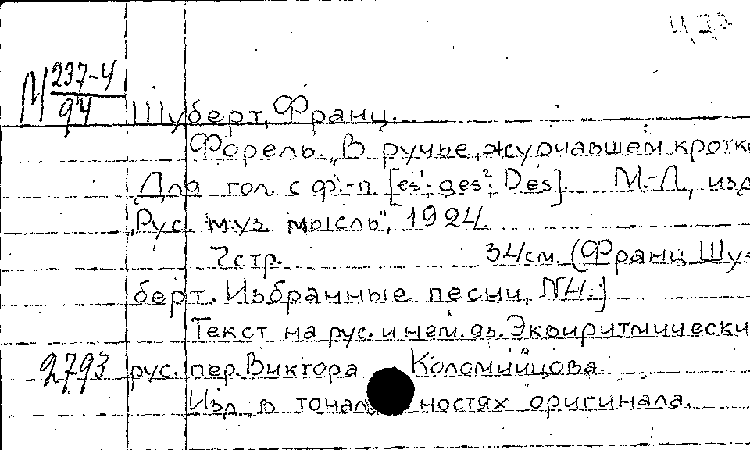 М 237-4
94
Шуберт, Франц.
Форель. „В ручье, журчавшем кротко
Для гол. с ф.-п. [es¹-ges²; Des]. М.-Л, изд
„Рус. муз. мысль", 1924.
7 стр. 34 см. (Франц Шу-
берт. Избранные песни,
Текст на рус. и нем. яз. Эквиритмически
2793 рус. пер. Виктора Коломийцова
Изд. в тональностях оригинала.